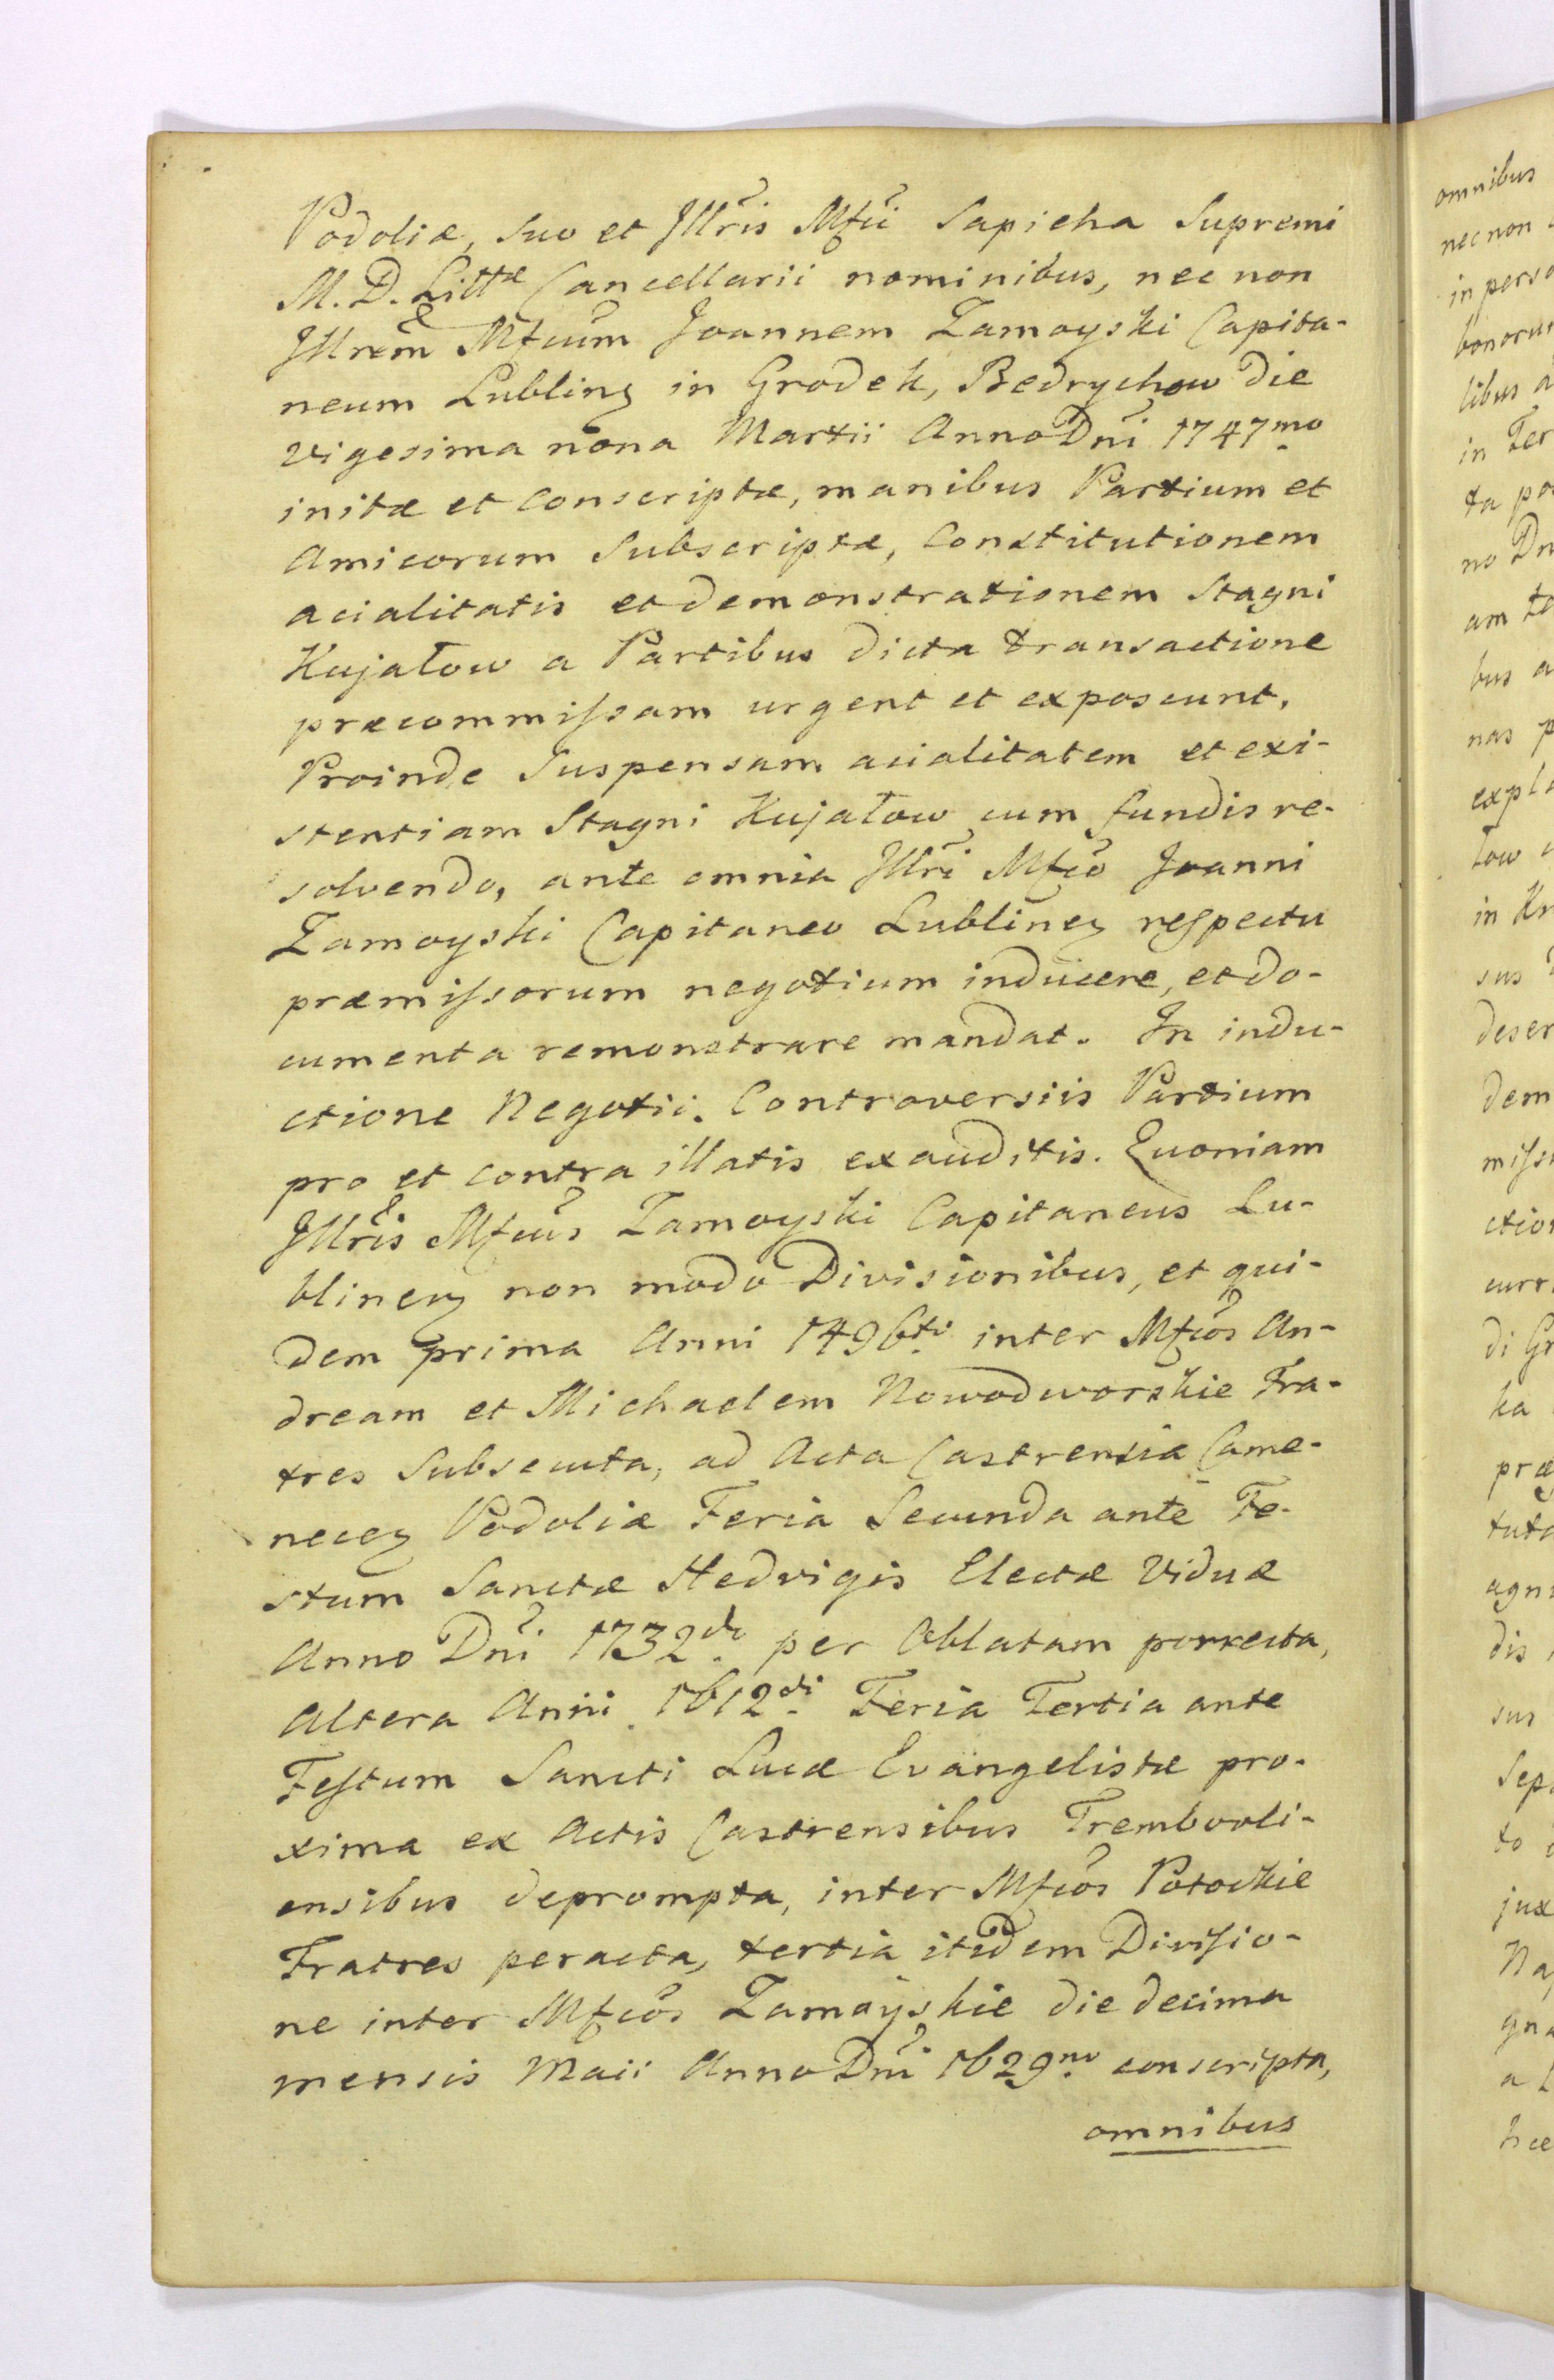 Podoliæ, suo et Jllris Mfci Sapieha Supremi
M. D. Littæ Cancellarii nominibus, nec non
Jllrem Mfcum Joannem Zamoyski Capita-
neum Lublinz in Grodek, Bedrychow die
vigesima nona Martii Anno Dni 1747mo
initæ et conscriptæ, manibus Partium et
Amicorum Subscriptæ, Constitutionem
acialitatis et demonstrationem Stagni
Kujałow a Partibus dicta transactione
præcommissam urgent et exposcunt.
Proinde Suspensam acialitatem et exi-
stentiam Stagni Kujałow cum fundis re-
solvendo, ante omnia Jllri Mfco Joanni
Zamoyski Capitaneo Lublinez respectu
præmissorum negotium inducere, et do-
cumenta remonstrare mandat. In indu-
ctione Negotii. Controversiis Partium
pro et contra illatis exauditis. Quoniam
Jllris Mfcus Zamoyski Capitaneus Lu-
blinez non modo Divisionibus, et qui-
dem prima Anni 1496ti inter Mfcos An-
dream et Michaelem Nowodworskie Fra-
tres Subsecuta, ad Acta Castrensia Came-
necez Podoliæ Feria Secunda ante Fe-
stum Sanctæ Hedvigis Electæ Viduæ
Anno Dni 1732do per Oblatam porrecta,
Altera Anni 1612di Feria Tertia ante
Festum Sancti Lucæ Evangelistæ pro-
xima ex Actis Castrensibus Trembovli-
ensibus deprompta, inter Mfcos Potockie
Fratres peracta, tertia itidem Divisio-
ne inter Mfcos Zamoyskie die decima
mensis Maii Anno Dni 1629no conscripta,
omnibus
omnibus
nec non
in perso
bonorum
libus a
in Ter
ta po
no Dn
am te
bus a
nas p
expla
łow
in Kr
sus
deser
dem
misse
ction
curr
di Gr
ka
præ
tuta
agni
dis
sus
Sep
to
jux
Na
gna
a
hæ